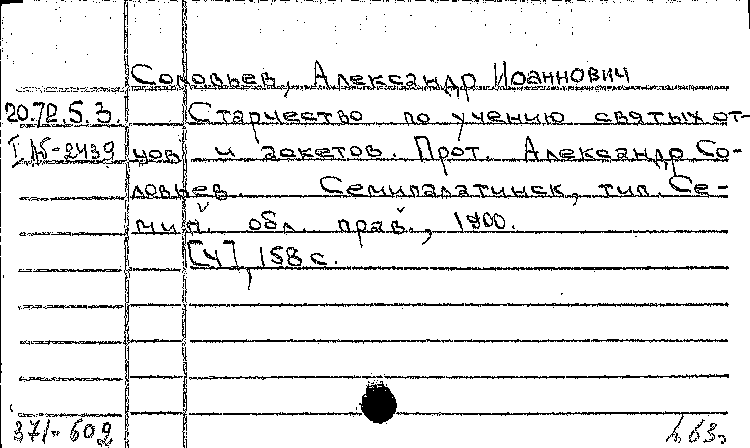 Соловьев, Александр Иоаннович
20.72.5.3. Старчество по учению святых от-
I АБ-2439 цов и аскетов. Прот. Александр Со-
ловьев. Семипалатинск, тип. Се-
мип. обл. прав., 1900.
[4], 158 с.
371-609